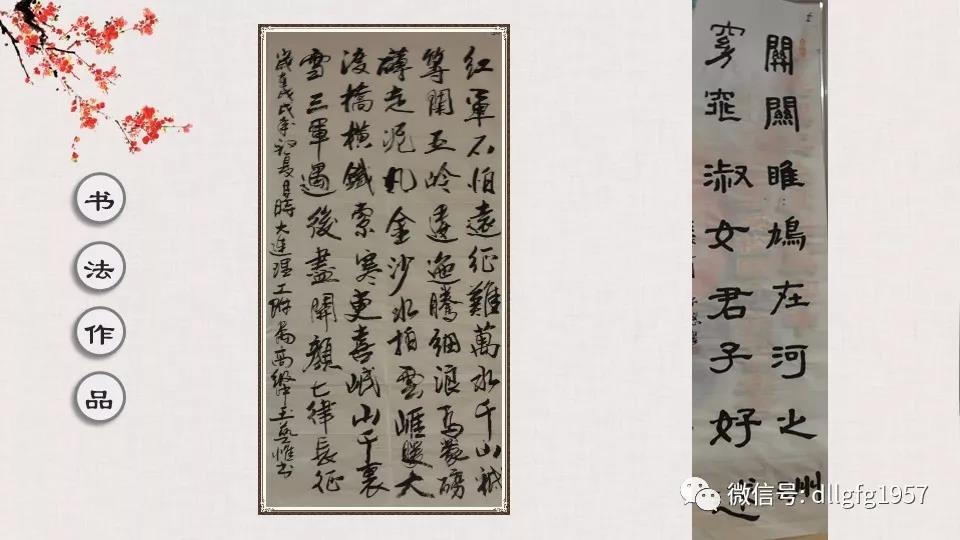 书法作品
红軍不怕遠征難萬水千山祇
等閑五岭逶迤騰細浪烏蒙磅
礴走泥丸金沙水拍雲崕暖大
渡橋橫鐵索寒更喜岷山千裏
雪三軍過後盡開顏七律長征
戊戌年初夏月時大連理工附屬高級中
關關雎鳩在河之洲
窈窕淑女君子好逑
微信号: dllgfg1957